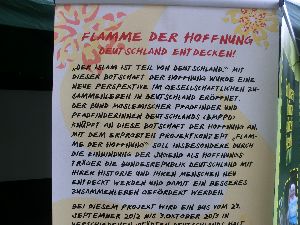 FLAMME DER HOFFNUNG
DEUTSCHLAND ENTDECKEN!
„DER ISLAM IST TEIL VON DEUTSCHLAND." MIT
DIESER BOTSCHAFT DER HOFFNUNG WURDE EINE
NEUE PERSPEKTIVE IM GESELLSCHAFTLICHEN ZU-
SAMMENLEBEN IN DEUTSCHLAND ERÖFFNET.
DER BUND MOSLEMISCHER PFADFINDER UND
PFADFINDERINNEN DEUTSCHLANDS (BMPPD)
KNÜPFT AN DIESE BOTSCHAFT DER HOFFNUNG AN.
MIT DEM ERPROBTEN PROJEKTKONZEPT „FLAM-
ME DER HOFFNUNG" SOLL INSBESONDERE DURCH
DIE EINBINDUNG DER JUGEND ALS HOFFNUNGS-
TRÄGER DIE BUNDESREPUBLIK DEUTSCHLAND MIT
IHRER HISTORIE UND IHREN MENSCHEN NEU
ENTDECKT WERDEN UND DAMIT EIN BESSERES
ZUSAMMENLEBEN GEFÖRDERT WERDEN.
BEI DIESEM PROJEKT WIRD EIN BUS VOM 27.
SEPTEMBER 2012 BIS 3. OKTOBER 2013 IN
VERSCHIEDENEN STÄDTEN DEUTSCHLANDS HALT